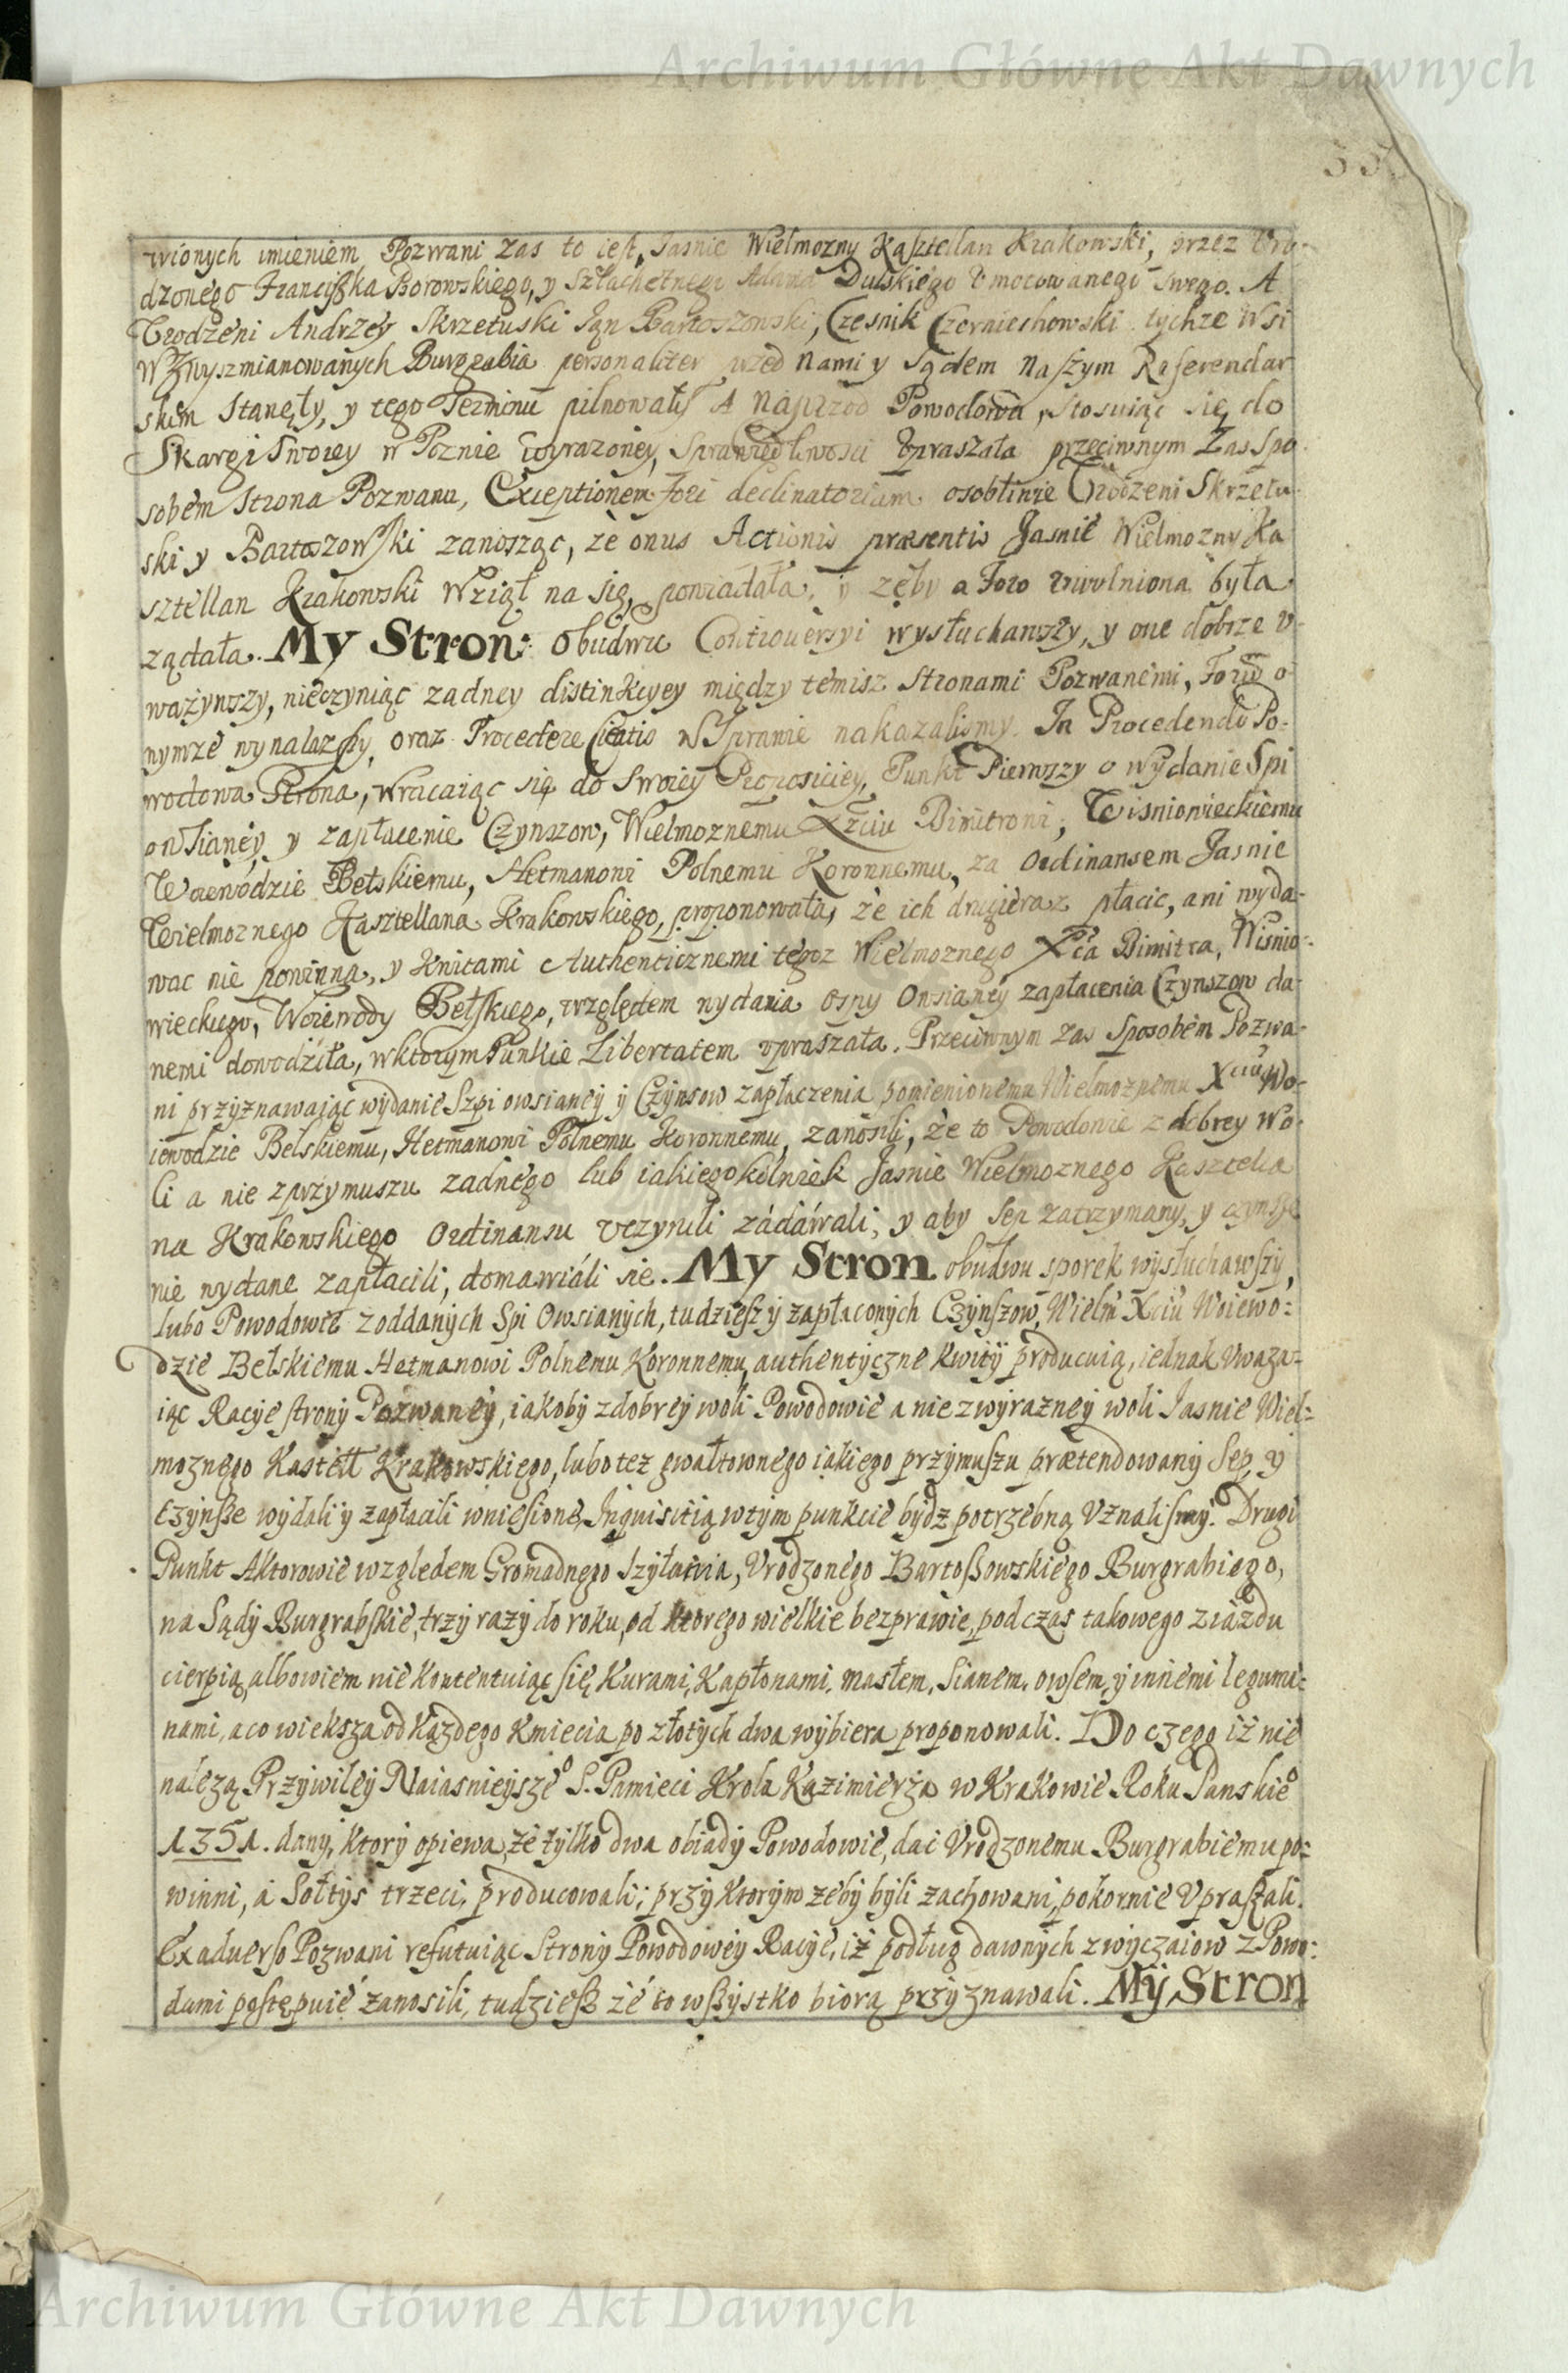 Archiwum Główne Akt Dawnych
wionych imieniem, Pozwani zas to iest, Jasnie Wielmozny Kasztellan Krakowski, przez Vro-
dzonego Franciszka Borowskiego, y Szlachetnego Adama Dulskiego Vmocowanego swego. A
Vrodzeni Andrzey Skrzetuski Jan Bartoszowski, Czesnik Czerniechowski tychze Wsi
Wzwyszmianowanych Burgrabia personaliter przed nami y Sądem naszym Referendar
skim stanęły, y tego Terminu pilnowały A naprzod Powodowa, stosuiąc się do
Skargi Swoiey w Poznie wyrazoney, Sprawiedliwosci upraszała przeciwnym Zas Spo
sobem Strona Pozwana, Exceptionem Fori declinatoriam osobliwie Vrodzeni Skrzetu
ski y Bartoszowski zanosząc, że onus Actionis præsentis Jasnie Wielmozny Ka
sztellan Krakowski Wziął na się, powiadała, y zęby a Foro uwolniona była
ządała. My Stron: obudwu Controversyi wysłuchawszy, y one dobrze u-
wazywszy, nieczyniąc zadney distinkcyey między temisz Stronami Pozwanemi, Forum o-
nymze wynalazszy, oraz Procedere Citatis w Sprawie nakazalismy. In Procedendo Po-
wodowa Strona, wracaiąc się do Swoiey Propositiey, Punkt Pierwszy o wydanie Spi
owsianey y zapłacenie Czynszow, Wielmoznemu Xżciu Dimitroni, Wisniowieckiemu
Woiewodzie Bełskiemu, Hetmanowi Polnemu Koronnemu, za Ordinansem Jasnie
Wielmoznego Kasztellana Krakowskiego, proponowała, że ich drugieraz płacic, ani wyda-
wac nie powinna, y Kwitami Authenticznemi tegoz Wielmoznego Xcia Dimitra, Wisnio-
wieckiego, Woiewody Bełskiego, względem wydania ospy Owsianey zapłacenia Czynszow da-
nemi dowodziła, w ktorym Punkcie Libertatem upraszała. Przeciwnym zas Sposobem Pozwa-
ni przyznawaiąc wydanie Szpi owsianey y Czynsow zapłaczenia pomienionemu Wielmoznemu Xciu Wo-
iewodzie Belskiemu, Hetmanowi Polnemu Koronnemu, zanosili, że to Powodowie z dobrey Wo-
li a nie z przymuszu zadnego lub iakiegokolwiek Jasnie Wielmoznego Kasztella
na Krakowskiego Ordinansu uczynili zádáwali, y aby Sep zatrzymany, y czynsze
nie wydane zapłacili, domawiáli sie. My Stron obudwu sporek wysłuchawszy,
lubo Powodowie z oddanych Spi Owsianych, tudziesz y zapłaconych Czynszow, Wielm Xciu Woiewo:
dzie Bełskiemu Hetmanowi Polnemu Koronnemu, authentyczne kwity producuią, iednak vwaza-
iąc Racye strony Pozwaney, iakoby z dobrey woli Powodowie a nie z wyrazney woli Jasnie Wiel:
moznego Kastell Krakowskiego, lubo tez gwałtownego iakiego przymuszu prætendowany Sep, y
Czynsze wydali y zapłacili wniesione, Inquisitią w tym punkcie bydz potrzebną Vznalismy. Drugi
Punkt Aktorowie wzgledem Gromadnego Szyłania, Vrodzonego Bartoszowskiego Burgrabiego,
na Sądy Burgrabskie, trzy razy do roku, od ktorego wielkie bezprawie, podczas takowego ziazdu
cierpią, albowiem nie kontentuiąc się, Kurami, Kapłonami, masłem, Sianem, owsem, y innemi legumi:
nami, a co wieksza od kazdego Kmiecia po złotych dwa wybiera proponowali. Do czego iż nie
nalezą Przywiley Naiasnieysze° S. Pamieci Krola Kazimierza w Krakowie Roku Panskie°
1351. dany, ktory opiewa, że tylko dwa obiady Powodowie, dac Vrodzonemu Burgrabiemu po:
winni, a Sołtys trzeci, producowali; przy ktorym zeby byli zachowani, pokornie Vpraszali.
Ex adverso Pozwani refutuiąc Strony Powodowey Racye, iż podług dawnych zwyczaiow z Powo:
dami postępuie zanosili, tudziesz że to wszystko biorą przyznawali. My Stron
Archiwum Główne Akt Dawnych